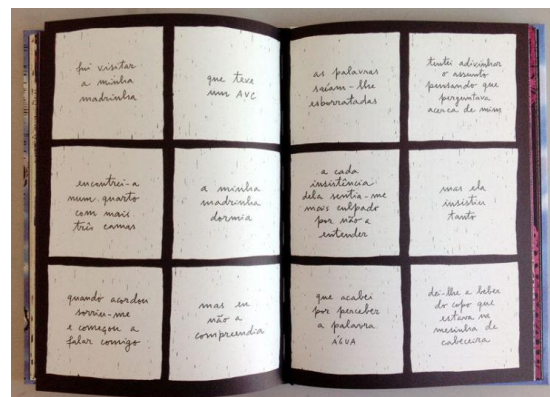 fui visitar
a minha
madrinha
que teve
um AVC
encontrei-a
num quarto
com mais
três camas
a minha
madrinha
dormia
quando acordou
sorriu-me
e começou a
falar comigo
mas eu
não a
compreendia
as palavras
saíam-lhe
esborratadas
tentei adivinhar
o assunto
pensando que
perguntava
acerca de mim
a cada
insistência
dela sentia-me
mais culpado
por não a
entender
mas ela
insistiu
tanto
que acabei
por perceber
a palavra
ÁGUA
dei-lhe a beber
do copo que
estava na
mesinha de
cabeceira